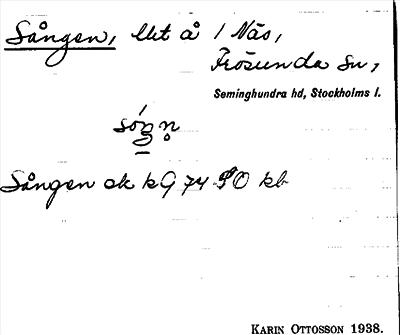 Sången, litet å i Näs,
Frösunda sn,
Seminghundra hd, Stockholms l.
Sången ek kG 74 SO kb
KARIN OTTOSSON 1938.